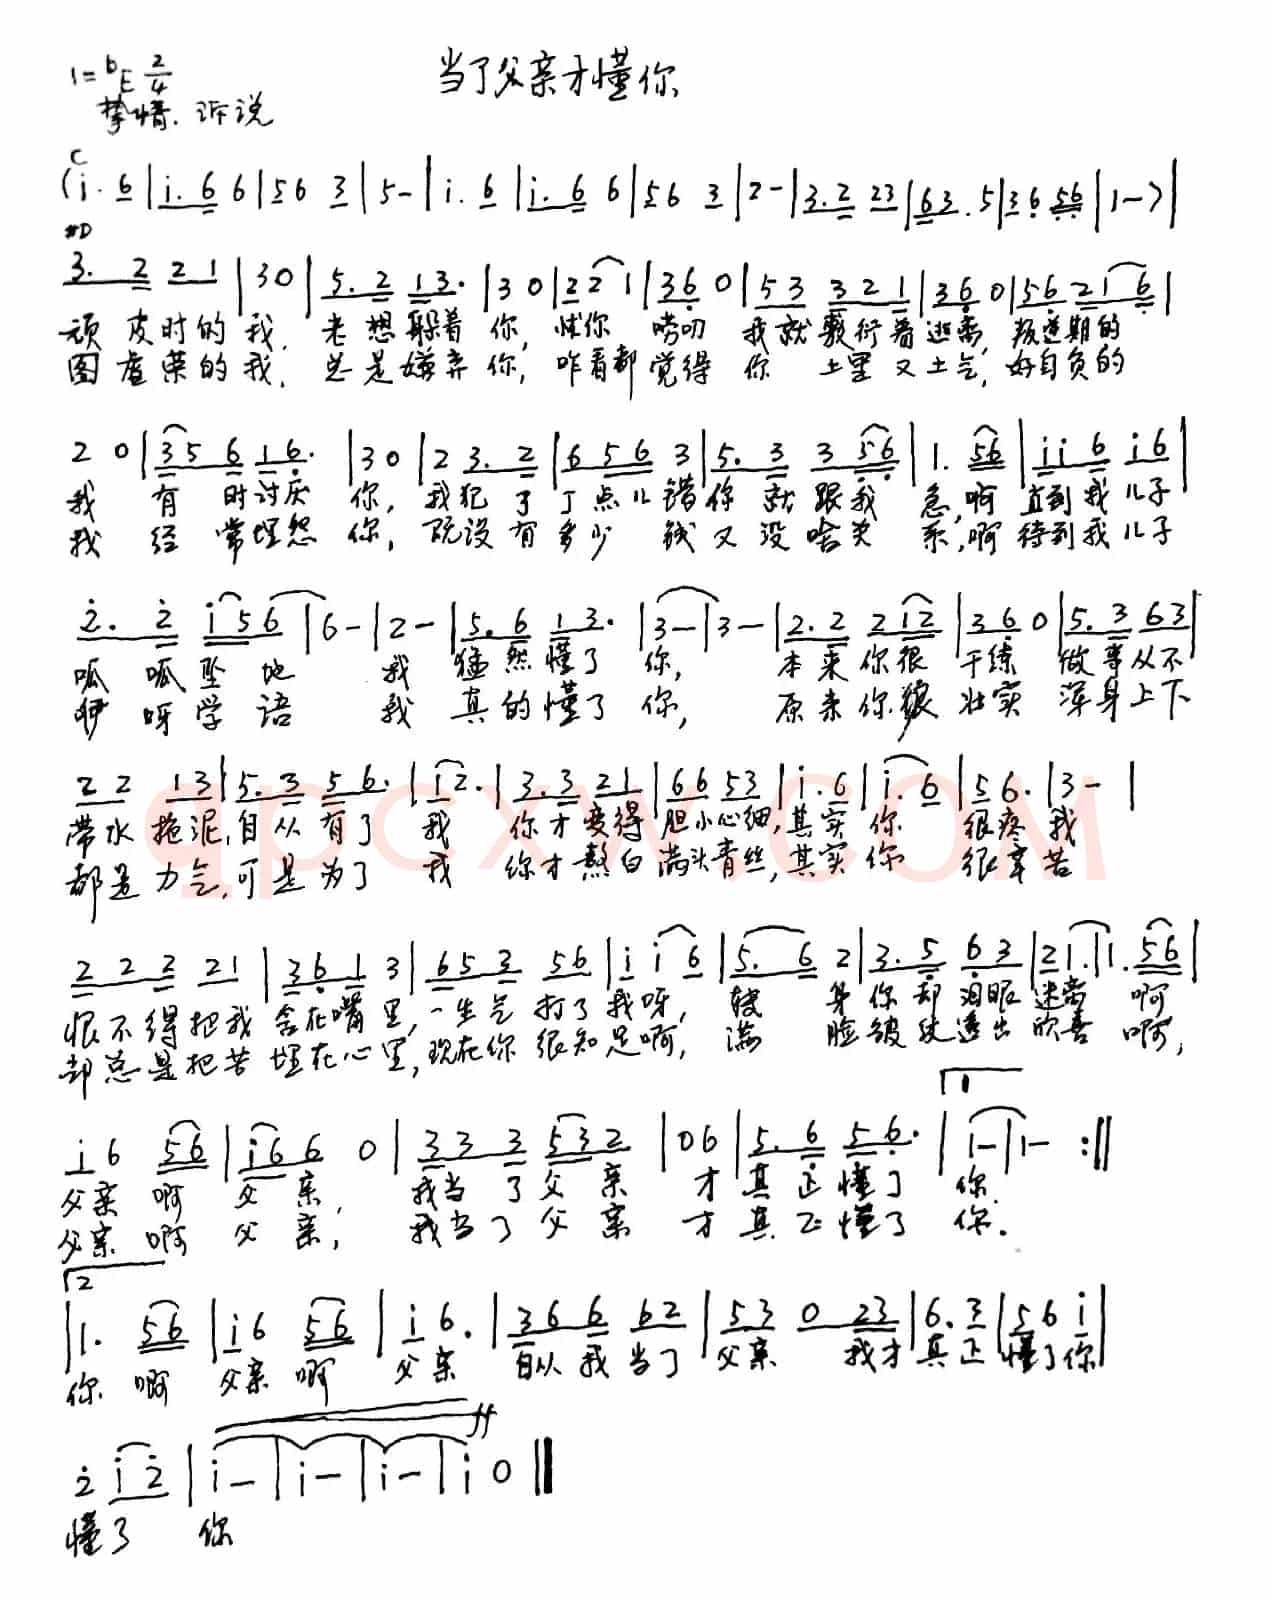 当了父亲才懂你
1=bE 2/4
挚情、诉说
C
(i. 6|i. 6 6|56 3|5-|i. 6|i. 6 6|56 3|2-|3.2 23|63. 5|36 56|1-)|
#D
3. 2 21|30|5.2 13.|30|22 1|360|53 321|360|56 216|
顽皮时的我, 老想躲着你, 怕你唠叨 我就敷衍着逃离, 叛逆期的
图虚荣的我, 总是嫌弃你, 咋看都觉得你 土里又土气, 好自负的
20|35 6 16.|30|23.2|656 3|5.3 356|1. 56|ii 6 i6|
我 有时讨厌你, 我犯了丁点儿错你就跟我急, 啊 直到我儿子
我 经常埋怨你, 既没有多少钱又没啥关系, 啊 待到我儿子
2. 2 i56|6-|2-|5.6 13.|3-|3-|2.2 2i2|360|5.3 63|
呱呱坠地 我猛然懂了你, 本来你很干练 做事从不
咿呀学语 我真的懂了你, 原来你很壮实 浑身上下
22 13|5.3 56.|i2.|3.3 21|66 53|i.6|i 6|56.|3-|
带水拖泥, 自从有了我 你才变得胆小心细, 其实你很疼我
都是力气, 可是为了我 你才熬白满头青丝, 其实你很辛苦
222 21|361 3|653 56|i i6|5. 6 2|3.5 63|21.|1. 56|
恨不得把我含在嘴里, 一生气打了我呀, 转身你却泪眼迷离 啊
却总是把苦埋在心里, 现在你很知足啊, 满脸皱纹透出欣喜 啊,
1
i6 56|i66 0|333 532|06|5.6 56.|1-|1- :||
父亲啊父亲, 我当了父亲 才真正懂了你.
父亲啊父亲, 我当了父亲 才真正懂了你.
2
|1. 56|i6 56|i6.|366 62|53 0 23|6.3|56 i|
你 啊 父亲啊 父亲 自从我当了父亲 我才真正懂了你
ff
2 i2|i-|i-|i-|i 0||
懂了 你
qpcxw.COM